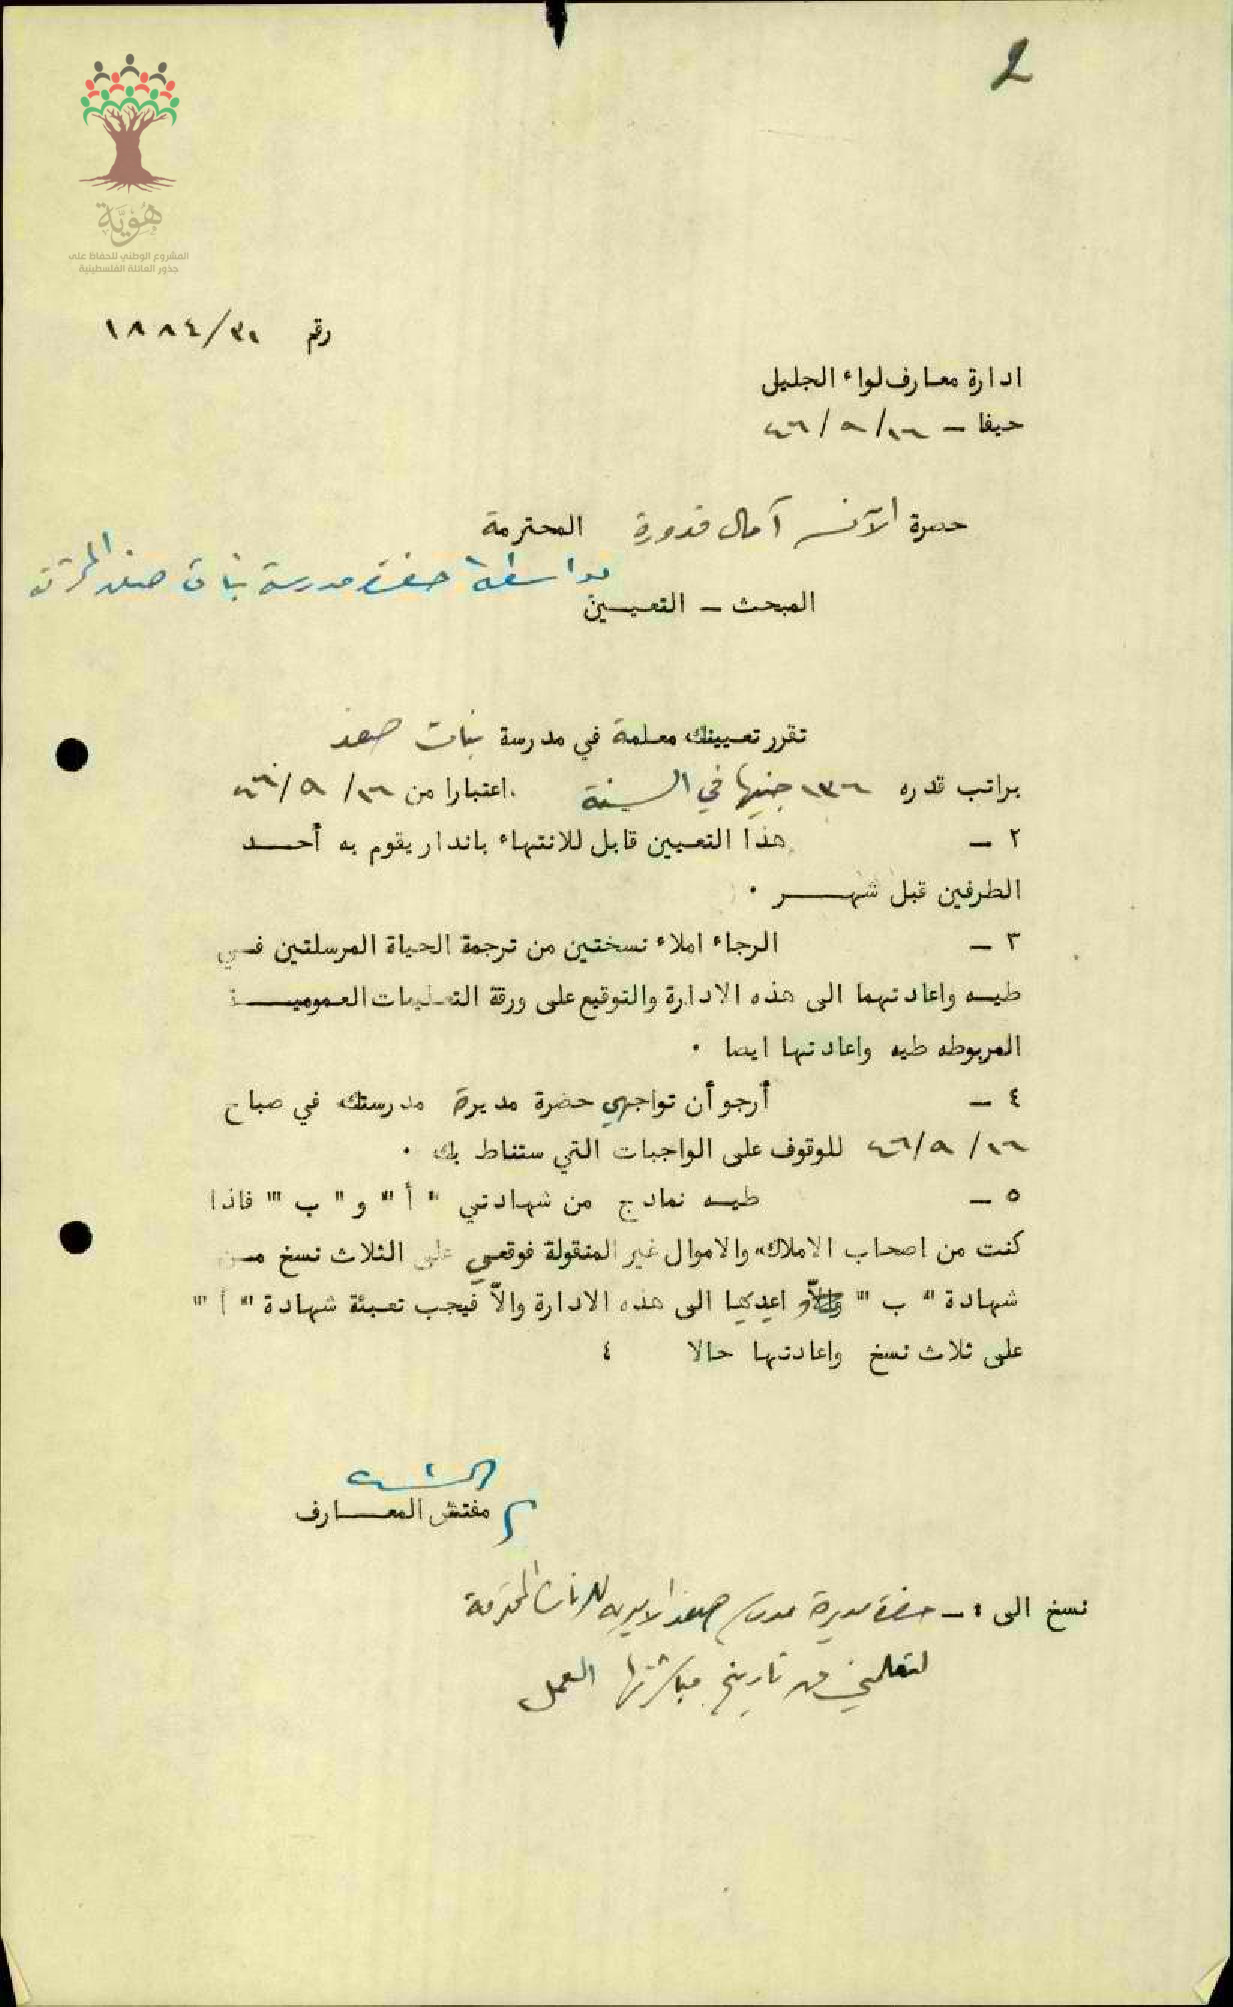 2
هُوِيَّة
المشروع الوطني للحفاظ على
جذور العائلة الفلسطينية
رقم ٣١/١٨٨٤
ادارة معارف لواء الجليل
حيفا – ١٦/ ٩ / ٤٦
حضرة الآنسه آمال قدورة المحترمة
بواسطة حضرة مدرسة بنات صفد المحترمة
المبحث – التعيين
تقرر تعيينك معلمة في مدرسة بنات صفد
براتب قدره ١٣٦ جنيها في السنة اعتبارا من ١٦/ ٩/ ٤٦
٢ – هذا التعيين قابل للانتهاء باندار يقوم به أحد
الطرفين قبل شهر ٠
٣ – الرجاء املاء نسختين من ترجمة الحياة المرسلتين في
طيه واعادتهما الى هذه الادارة والتوقيع على ورقة التعليمات العمومية
المربوطه طيه واعادتها ايضا ٠
٤ – أرجو أن تواجهي حضرة مديرة مدرستك في صباح
١٦/ ٩/ ٤٦ للوقوف على الواجبات التي ستناط بك ٠
٥ – طيه نمادج من شهادتي " أ " و " ب " فاذا
كنت من اصحاب الاملاك والاموال غير المنقولة فوقعي على الثلاث نسخ من
شهادة " ب " و اعيديها الى هذه الادارة والاّ فيجب تعبئة شهادة " أ "
على ثلاث نسخ واعادتها حالا ٤
مفتش المعارف
نسخ الى :– حضرة مديرة مدرسة صفد الاميريه للبنات المحترمة
لتعلمني عن تاريخ مباشرتها العمل